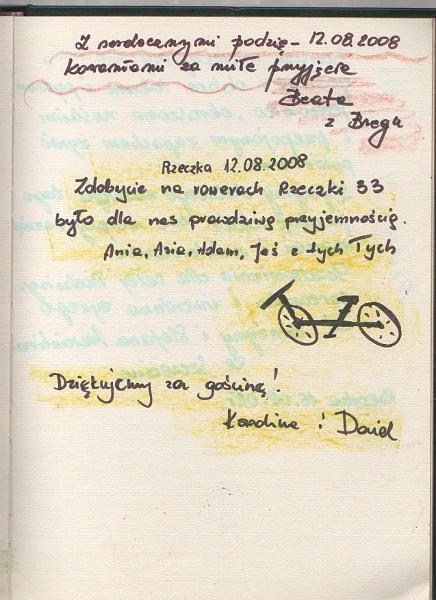 Z serdecznymi podzię- 12.08.2008
kowaniami za miłe przyjęcie
Beata
z Brzegu
Rzeczka 12.08.2008
Zdobycie na rowerach Rzeczki 33
było dla nas prawdziwą przyjemnością.
Ania, Asia, Adam, Jeś z tych Tych
Dziękujemy za gościnę!
Karolina i Dawid